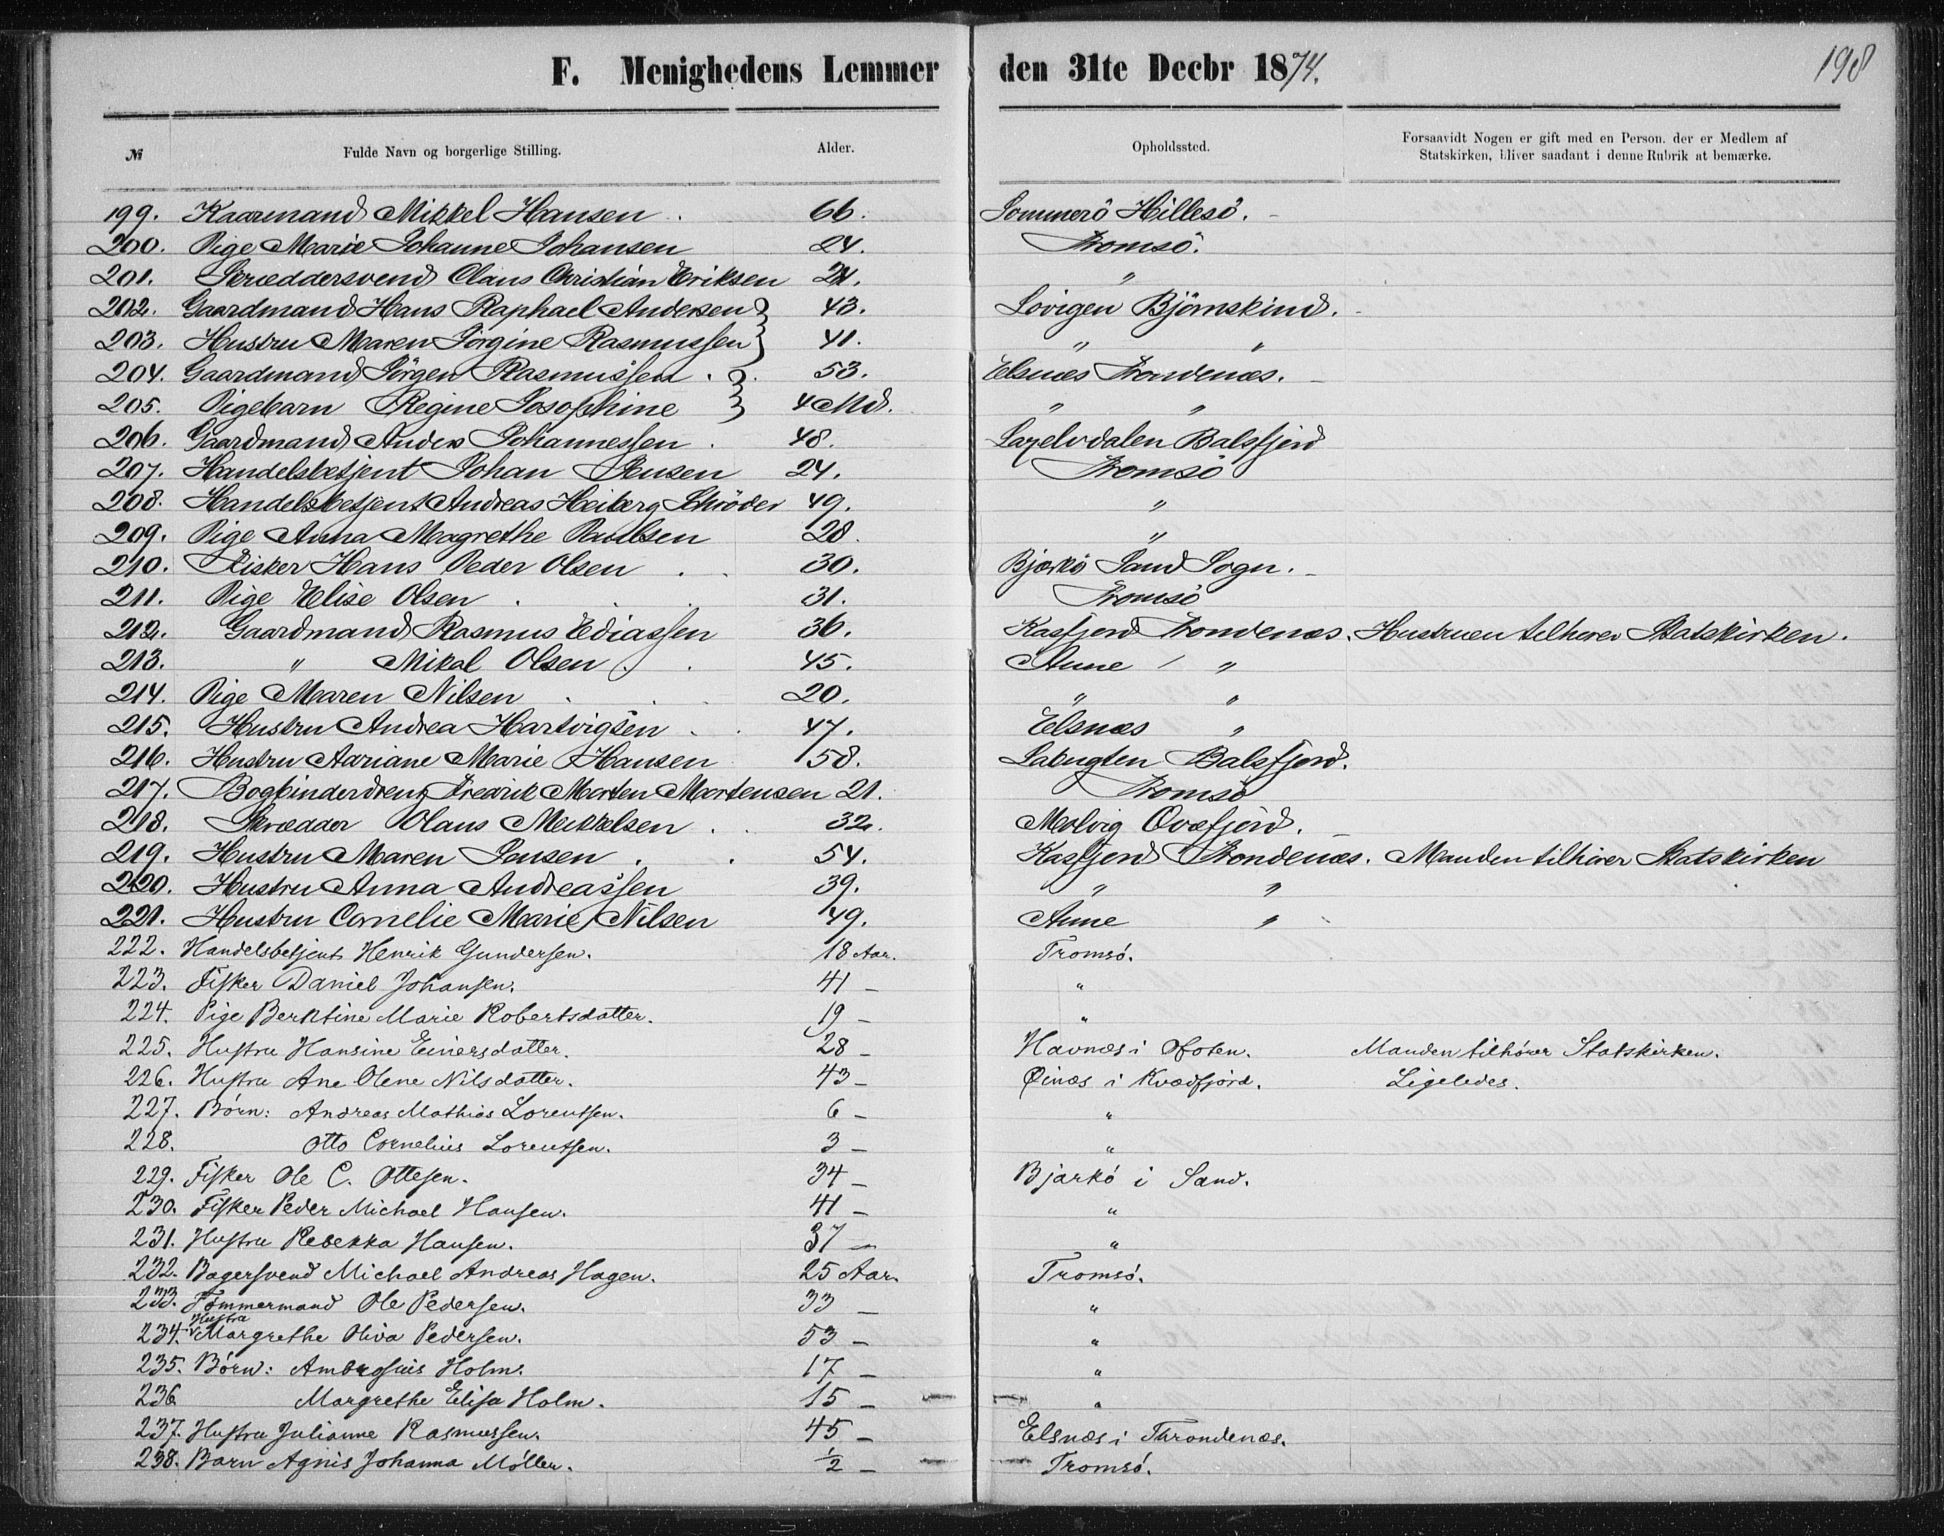 F. Menighedens Lemmer den 31te Decbr 1874. 198
№ Fulde Navn og borgerlige Stilling. Alder. Opholdssted. Forsaavidt Nogen er gift med en Person, der er Medlem af Statskirken, bliver saadant i denne Rubrik at bemærke.
199. Kaarmand Mikkel Hansen . 66. Sommerö Hillesö.
200. Pige Marie Johanne Johansen 24. Tromsö.
201. Skræddersvend Claus Christian Eriksen 21. "
202. Gaardmand Hans Raphael Andersen 43. Lovigen Björnskind.
203. Hustru Maren Jörgine Rasmussen 41. " "
204. Gaardmand Jörgen Rasmussen . 53. Elsnæs Trondenæs.
205. Pigebarn Regine Josophine 4 Md. " "
206. Gaardmand Anders Johannessen . 48. Balsfjord
207. Handelsbetjent Johan Jensen 24. Tromsö
208. Handelsbetjent Andreas Heiberg Schrøder 49. "
209. Pige Anna Magrethe Paulsen 28. "
210. Fisker Hans Peder Olsen . . 30. Bjarkö Sand Sogn.
211. Pige Elise Olsen . . . 31. Tromsö
212. Gaardmand Rasmus Ediassen 36. Kasfjord Trondenæs. Hustruen tilhører Statskirken.
213. " Mikal Olsen . . 45. Aune "
214. Pige Maren Nilsen . . . 20. " "
215. Hustru Andrea Hartvigsen . . 47. Elsnæs "
216. Hustru Aariane Marie Hansen 58. Balsfjord.
217. Bogbinderdreng Fredrik Morten Mortensen 21. Tromsö
218. Skrædder Olaus Mekkelsen . . 32. Melvig Qvæfjord.
219. Hustru Maren Jensen . . 54. Kasfjord Trondenæs. Manden tilhører Statskirken
220. Hustru Anna Andreassen 39. " "
221. Hustru Cornelie Marie Nilsen 49. Aune "
222. Handelsbetjent Henrik Gundersen. 18 Aar. Tromsø.
223. Fisker Daniel Johansen. 41 – "
224. Pige Berntine Marie Robertsdatter. 19 – "
225. Hustru Hansine Einersdatter. 28 – Havnæs i Ofoten. Manden tilhører Statskirken.
226. Hustru Ane Olene Nilsdatter. 43 – Øinæs i Kvædfjord. Ligeledes.
227. Børn: Andreas Mathias Lorentsen. 6 – "
228. Otto Cornelius Lorentsen. 3 – "
229. Fisker Ole C. Ottesen. 34 – Bjarkó i Sand.
230. Fisker Peder Michael Hansen. 41 – "
231. Hustru Rebekka Hansen. 37 – "
232. Bagersvend Michael Andreas Hagen. 25 Aar. Tromsø.
233. Tømmermand Ole Pedersen. 33 – "
234. Hustru Margrethe Oliva Pedersen. 53 – "
235. Børn: Ambrosius Holm. 17 – "
236 Margrethe Elisa Holm. 15 – "
237. Hustru Julianne Rasmussen. 45 – Elsnæs i Throndenæs.
238. Barn Agnis Johanna Møller. ½ – Tromsø.